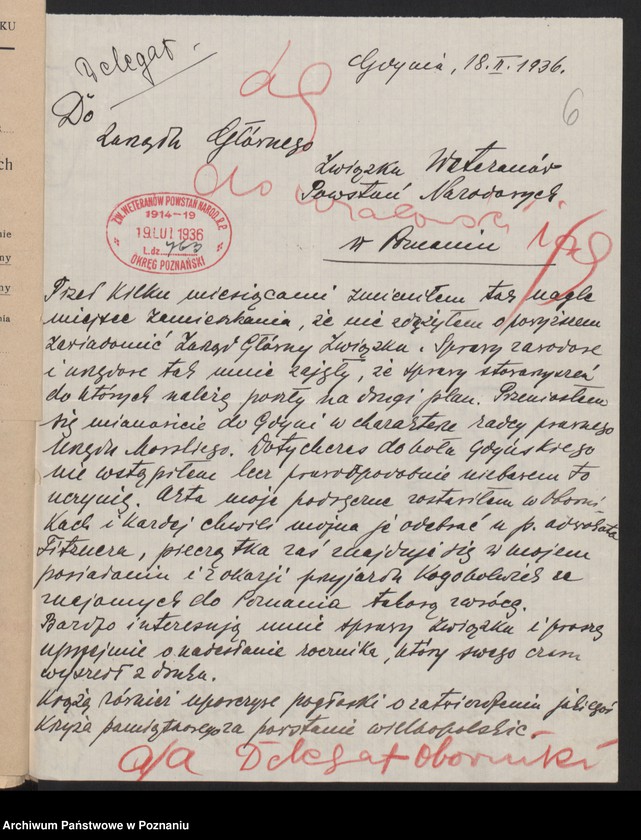 KU
Delegat.
Gdynia, 18.II.1936.
6
Do
Zarządu Głównego
Związku Weteranów
Powstań Narodowych
w Poznaniu
ZW. WETERANÓW POWSTAŃ NAROD. R.P.
1914-19
19 LUT 1936
L.dz. 763
OKRĘG POZNAŃSKI
ch
nie
ny
ny
nia
Przed kilku miesiącami zmieniłem tak nagle
miejsce zamieszkania, że nie zdążyłem o powyższem
zawiadomić Zarząd Główny Związku. Sprawy zawodowe
i urzędowe tak mnie zajęły, że sprawy stowarzyszeń
do których należę poszły na drugi plan. Przeniosłem
się mianowicie do Gdyni w charakterze radcy prawnego
Urzędu Morskiego. Dotychczas do koła Gdyńskiego
nie wstąpiłem lecz prawdopodobnie niebawem to
uczynię. Akta moje podręczne zostawiłem w Oborni-
kach i każdej chwili można je odebrać u p. adwokata
Fitznera, pieczątka zaś znajduje się w mojem
posiadaniu i z okazji przyjazdu kogokolwiek ze
znajomych do Poznania takową zwrócę.
Bardzo interesują mnie sprawy Związku i proszę
uprzejmie o nadesłanie rocznika, który swego czasu
wyszedł z druku.
Krążą również uporczywe pogłoski o zatwierdzeniu jakiegoś
Krzyża pamiątkowego za powstanie wielkopolskie.
a/a Delegat Oborniki
Archiwum Państwowe w Poznaniu